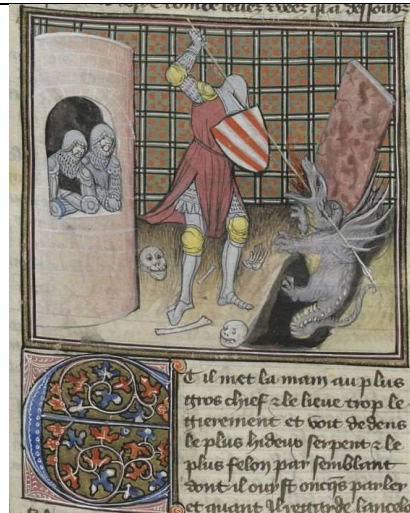 et il met la main au plus
gros chief ⁊ le lieue trop le
gierement et voit dedens
le plus hideus serpent ⁊ le
plus felon par semblant
dont il ouyst oncq̄s parler
et quant il regarde lancelo